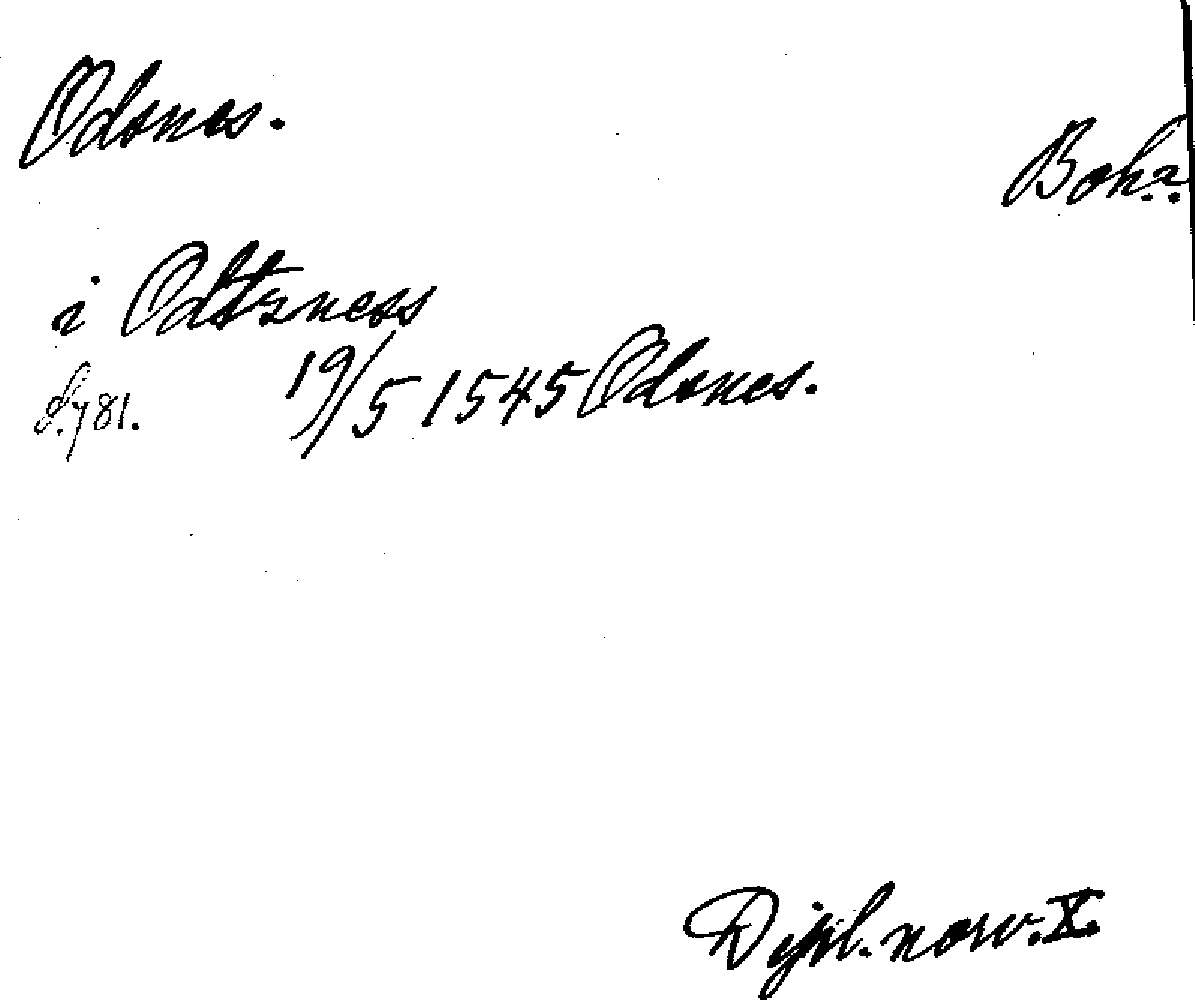 Odsnes.
Boh.
i Odtzness
S. 781.
19/5 1545 Odsnes.
Dipl. norv. X.